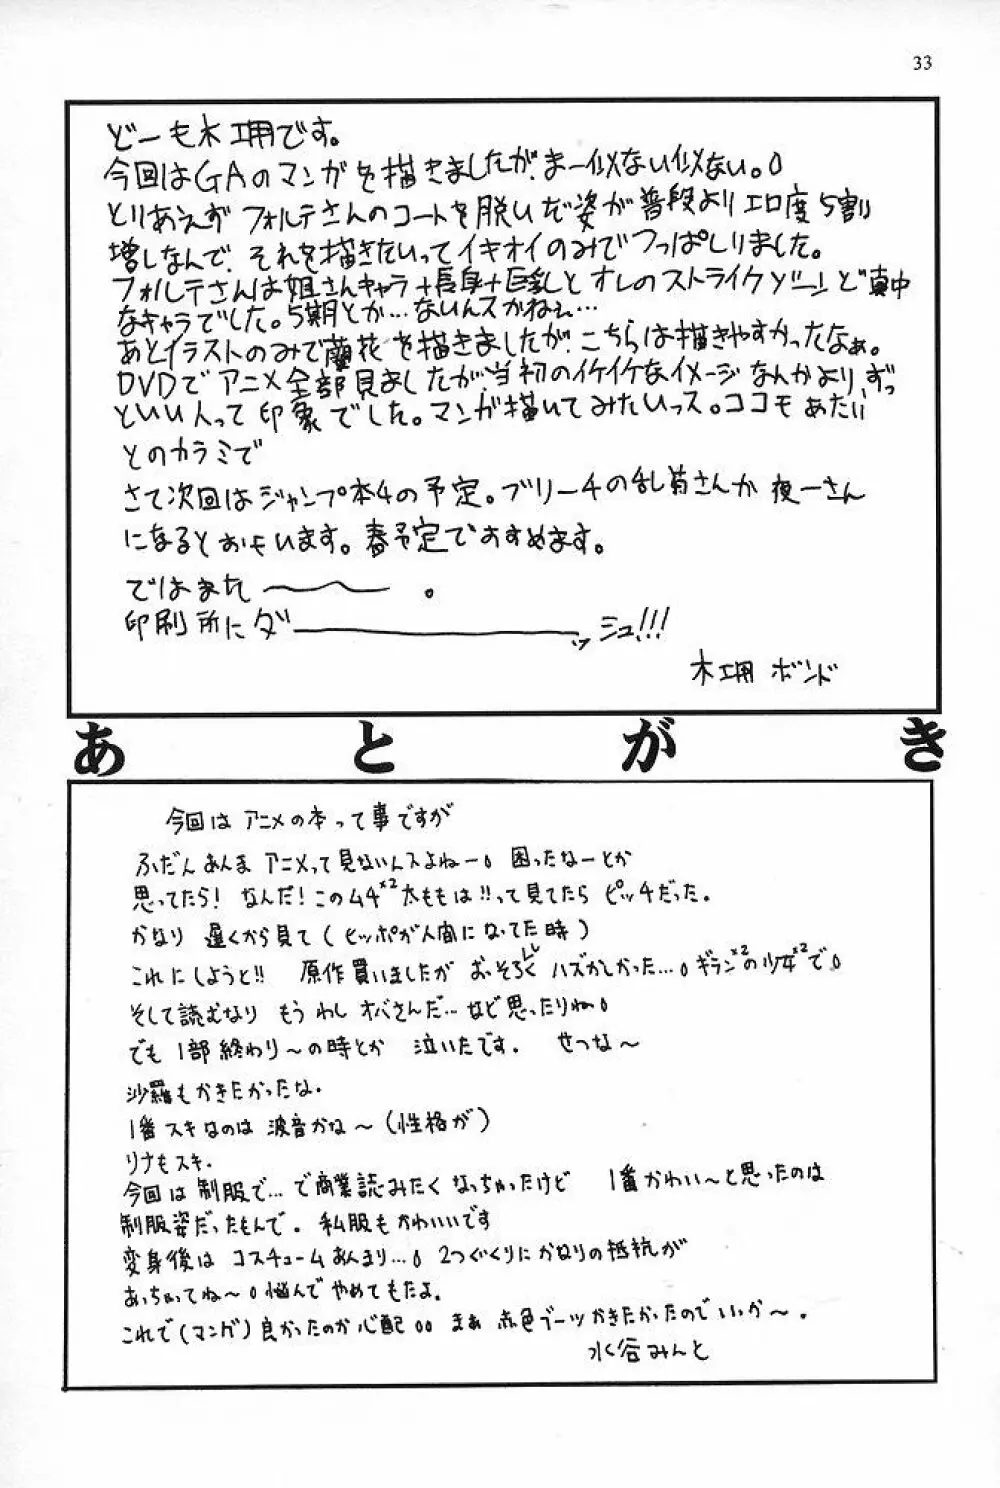 33
どーも木工用です。
今回はGAのマンガを描きましたが、まー似ない似ない。
とりあえず フォルテさんのコートを脱いだ姿が普段よりエロ度5割
増しなんで、それを描きたいってイキオイのみでつっぱしりました。
フォルテさんは姐さんキャラ+長身+巨乳とオレのストライクゾーンど真中
なキャラでした。5期とか…ないんスかねぇ…
あとイラストのみで蘭花を描きましたが、こちらは描きやすかったなぁ。
DVDでアニメ全部見ましたが、当初のイケイケなイメージなんかより、ずっ
といい人って印象でした。マンガ描いてみたいっス。ココモあたり
とのカラミで
さて次回はジャンプ本4の予定。ブリーチの乱菊さんか夜一さん
になるとおもいます。春予定ですすめます。
ではまた〜。
印刷所にダーッシュ!!!
木工用 ボンド
あとがき
今回は アニメの本って事ですが
ふだんあんま アニメって見ないんスよねー。困ったなーとか
思ってたら! なんだ!このムチ×2 太ももは!!って見てたら ピッチだった。
かなり 遅くから見て(ヒッポが人間になってた時)
これにしようと!! 原作買いましたが おっそろしく ハズかしかった…。ギラン×2の少女×2で。
そして読むなり もう わし オバさんだ…など思ったりね。
でも 1部終わり〜の時とか 泣いたです. せつな〜
沙羅もかきたかったな.
1番スキなのは 波音かな〜(性格が)
リナもスキ.
今回は 制服で…で商業読みたく なっちゃったけど 1番かわい〜と思ったのは
制服姿だったもんで。私服も かわいいです
変身後は コスチュームあんまり…。2つぐくりに かなりの抵抗が
あっちゃってね〜。悩んで やめてもたよ.
これで(マング)良かったのか 心配。。まぁ 赤色ブーツかきたかったのでいいか〜.
水谷みんと